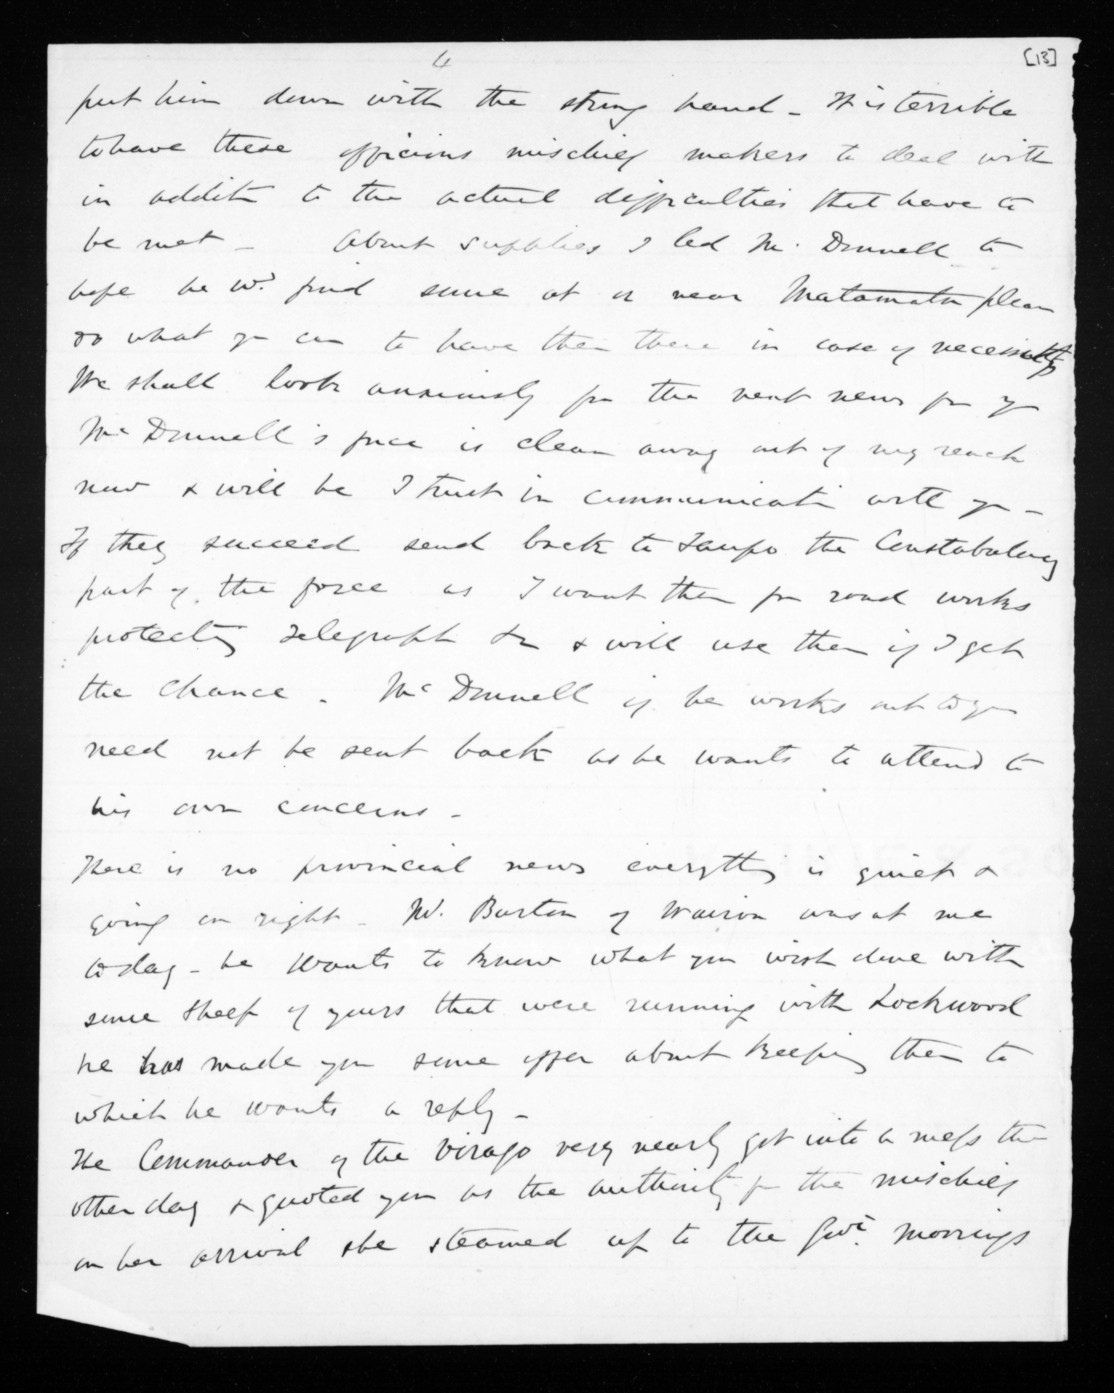 4
[13]
put him down with the strong hand - It is terrible
to have these officious mischief makers to deal with
in addition to the actual difficulties that have to
be met - About supplies I led McDonnell to
hope he wd. find some at or near Matamata please
do what you can to have them there in case of necessity
We shall look anxiously for the next news from you
McDonnell's force is clean away out of my reach
now & will be I trust in communication with you -
If they succeed send back to Taupo the Constabulary
part of the force as I want them for road works
protecting Telegraph &c & will use them if I get
the chance. McDonnell if he works out to you
need not be sent back as he wants to attend to
his own concerns -
There is no provincial news everything is quiet &
going on right - Mr. Burton of Wairoa was at me
today - he wants to know what you wish done with
some sheep of yours that were running with Lockwood
he has made you some offer about keeping them to
which he wants a reply -
The Commander of the Virago very nearly got into a mess the
other day & quoted you as the authority for the mischief
on her arrival she steamed up to the Govt. moorings